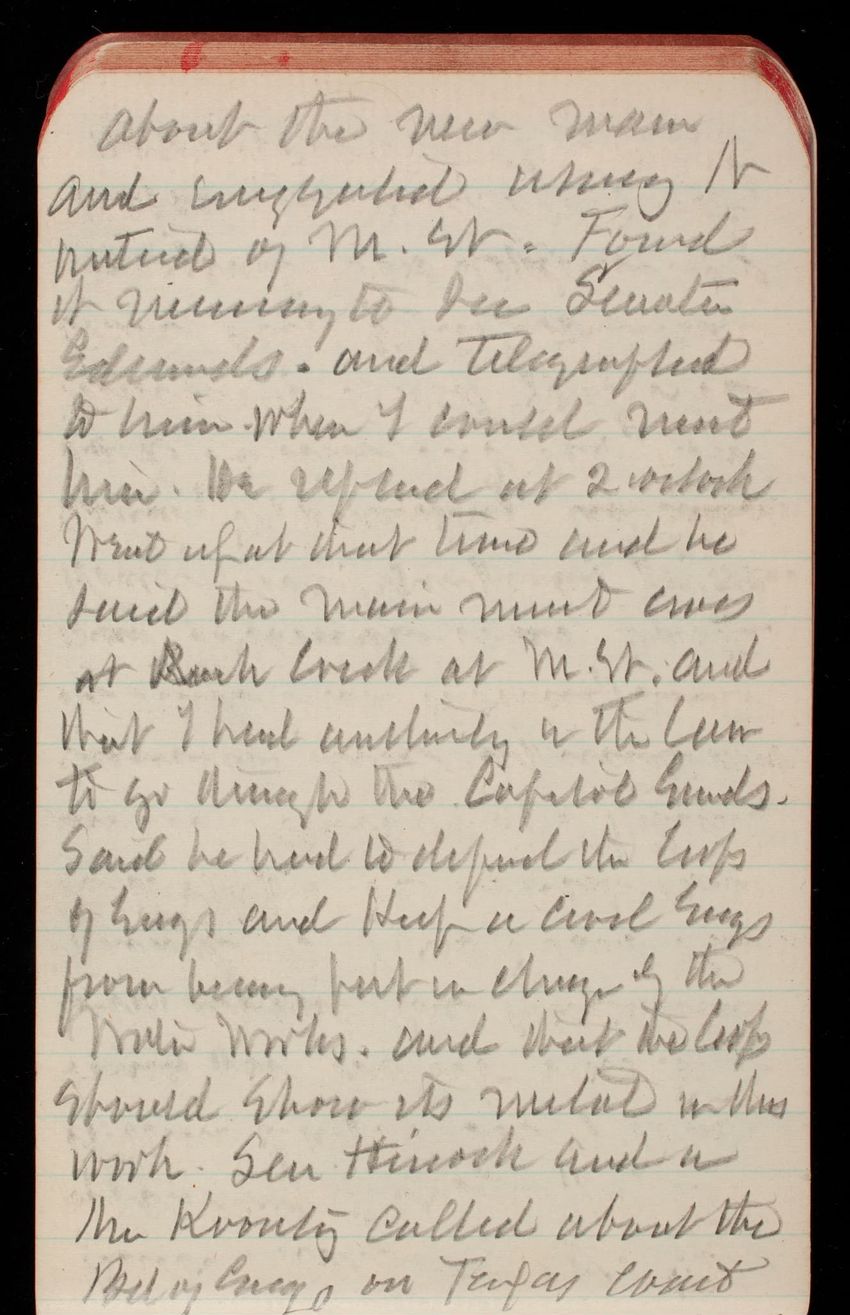 about the new main
and suggested using N
instead of M. St. Found
it necessary to see Senator
Edmunds. and Telegraphed
to him when I could meet
him. He replied at 2 oclock
Went up at that time and he
said the main must cross
at Rock Creek at M. St. and
that I had authority in the law
to go through the Capitol Grnds.
Said he had to defend the Corps
of Engs and Keep a civil Engs
from being put in charge of the
Water Works. and that the Corps
should show its metal in this
work. Gen and a
Mr Koontz called about the
Bd of Engs on Texas coast